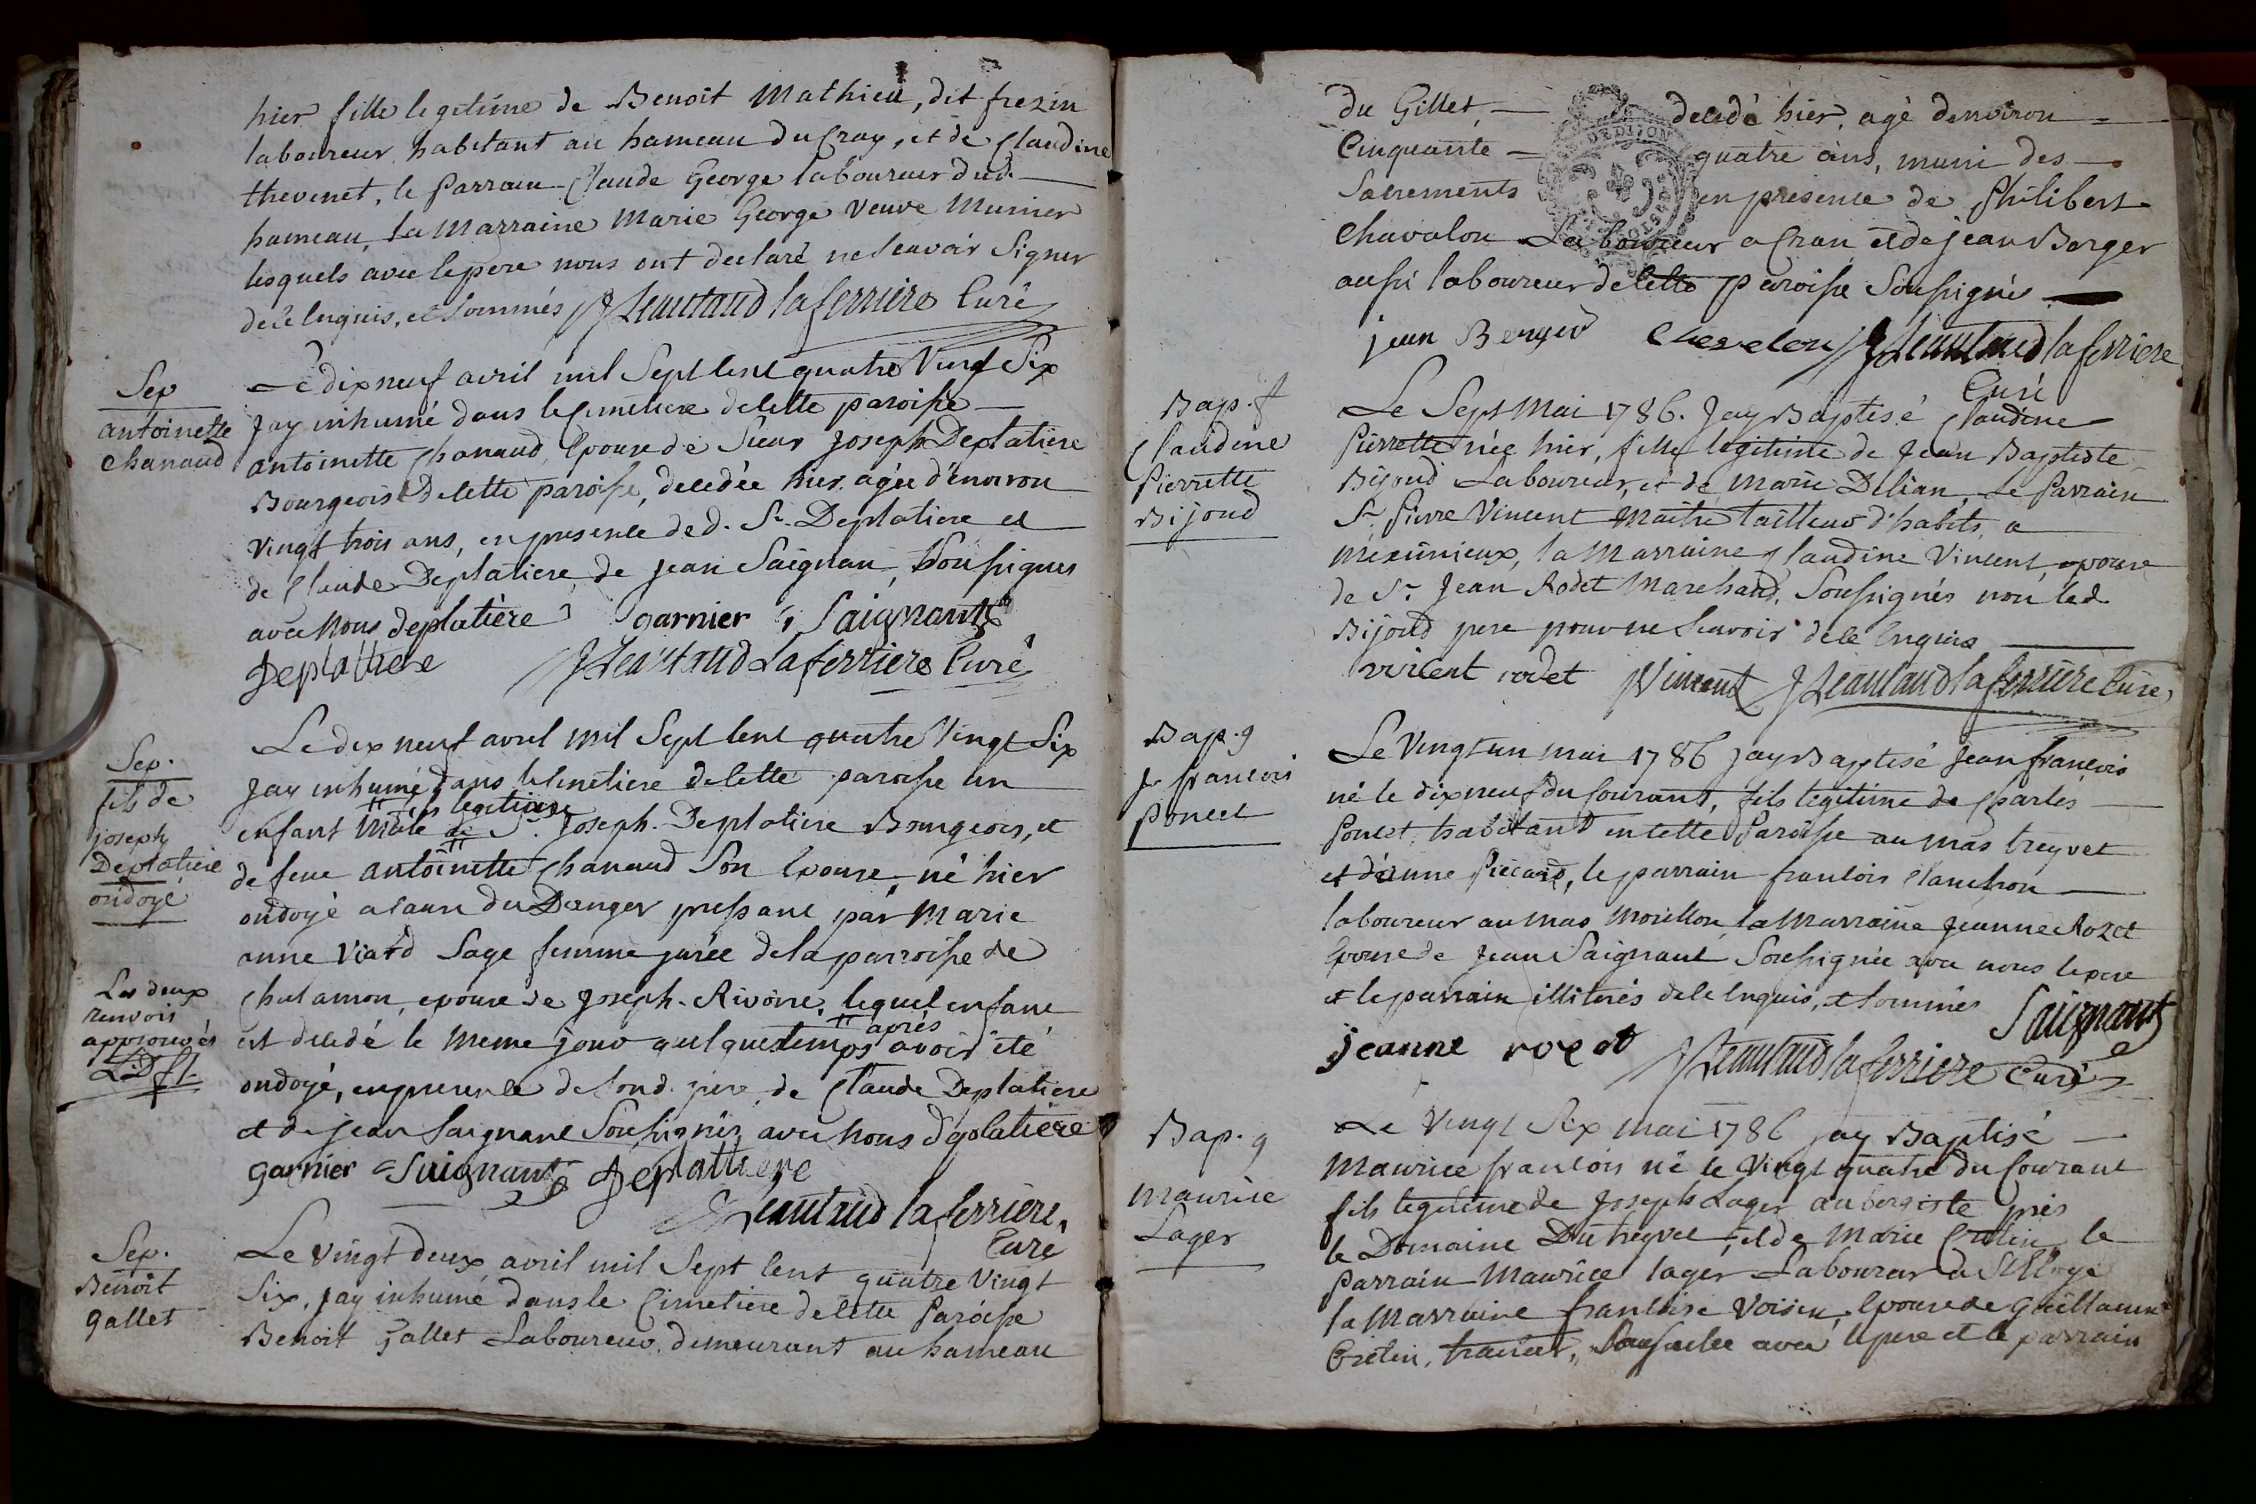 hier fille legitime de Benoît Mathieu, dit frezin
laboureur habitant au hameau du Cray, et de Claudine
thevenet, le Parrain Claude George laboureur dud.
hameau, la Marraine Marie George veuve Munier
lesquels avec le pere nous ont declaré ne scavoir Signer
de ce Enquis, et Sommés JLeautaud laferriere Curé
Sep
antoinette
chanaud
Le dix neuf avril mil Sept Cent quatre Vingt Six
Jay inhumé dans le Cimetiere de cette paroisse
antoinette Chanaud, Epouse de Sieur Joseph Deplatiere
Bourgeois de cette paroisse, decedée hier, agée d'environ
Vingt trois ans, en presence de d. Sr. Deplatiere et
de Claude Deplatiere, de jean Saignan, Soussignés
avec Nous deplatière garnier Saignant
deplatiere JLeautaud Laferriere Curé
Sep.
fils de
joseph
Deplatiere
ondoyé
Le dix neuf avril mil Sept Cent quatre Vingt Six
Jay inhumé dans le Cimetiere de cette paroisse un
fils legitime
enfant Mâle de Sr. Joseph Deplatiere Bourgeois, et
de feue antoinette Chanaud Son Epouse, né hier
ondoyé a cause du Danger pressant par Marie
anne Viard Sage femme jurée de la parroisse de
Les deux
renvois
approuvés
Chalamon, epouse de Joseph Rivoire, lequel enfant
après
est decedé le meme jour quelque temps avoir été
ondoyé, en presence de Sond. pere, de Claude Deplatiere
et de jean Saignant Soussignés avec Nous deplatière
garnier Saignant deplatiere
JLeautaud laferriere
Curé
Sep.
Benoît
gallet
Le Vingt deux avril mil Sept Cent quatre Vingt
Six, jay inhumé dans le Cimetiere de cette Paroisse
Benoit Gallet Laboureur, demeurant au hameau
du Gillet, decedé hier, agé denviron
Cinquante quatre ans, muni des
Sacrements en presence de Philibert
Chavalon Laboureur a Cran et de jean Berger
aussi laboureur de cette paroisse Soussignés
jean Berger Chevelon JLeautaud laferriere
Curé
Bap. f
Claudine
Pierrette
Bijoud
Le Sept Mai 1786. Jay Baptisé Claudine
Pierrette née hier, fille legitime de Jean Baptiste
Bijoud Laboureur, et de Marie Delian, Le Parrain
Sr. Pierre Vincent Maître tailleur d'habits, a
Meximieux, la Marraine Claudine Vincent, epouse
de Sr. Jean Rodet Marchand, Soussignés non led
Bijoud pere pour ne Scavoir de ce Enquis
vincent rodet PVincent JLeautaud laferriere Curé
Bap. g
J. francois
Poncet
Le Vingt un mai 1786 jay Baptisé Jean françois
né le dixneuf du Courant, fils legitime de Charles
Poncet habitant en cette Paroisse au mas treyvet
et d'anne Piccard, le parrain francois
laboureur au Mas Morillon, la Marraine Jeanne Rozet
Epouse de Jean Saignant Soussignée avec nous le pere
et le parrain illiterés de ce Enquis, et Sommés Saignant
jeanne rozet JLeautaud laferriere Curé
Bap. g
Maurice
Lager
Le Vingt Six mai 1786 jay Baptisé
Maurice francois né le Vingt quatre du Courant
fils legitime de Joseph Lager aubergiste près
le Domaine Du treyvet, et de Marie Cretin, le
Parrain Maurice lager Laboureur a St Eloye
la Marraine francoise Voisin, Epouse de Guillaume
Cretin, avec le pere et le parrain